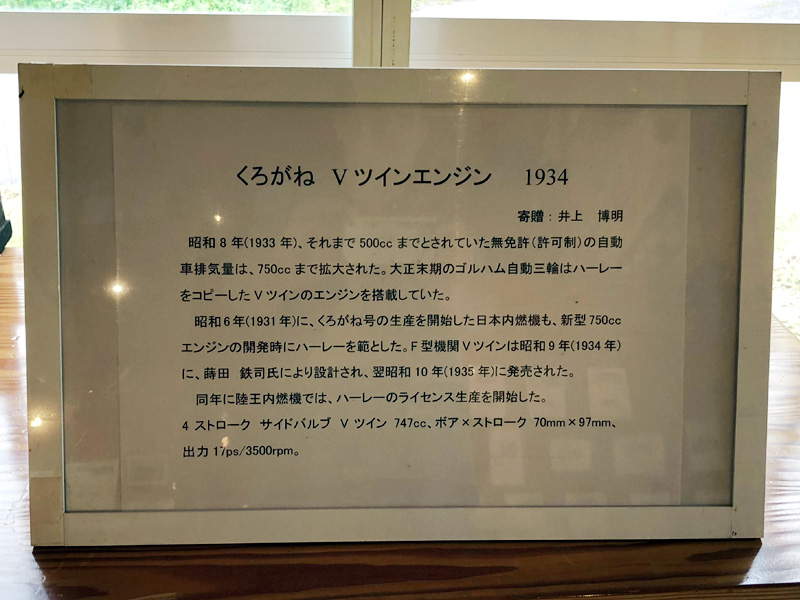 くろがね Vツインエンジン 1934
寄贈：井上 博明
昭和8年(1933年)、それまで500ccまでとされていた無免許(許可制)の自動
車排気量は、750ccまで拡大された。大正末期のゴルハム自動三輪はハーレー
をコピーしたVツインのエンジンを搭載していた。
昭和6年(1931年)に、くろがね号の生産を開始した日本内燃機も、新型750cc
エンジンの開発時にハーレーを範とした。F型機関Vツインは昭和9年(1934年)
に、蒔田 鉄司氏により設計され、翌昭和10年(1935年)に発売された。
同年に陸王内燃機では、ハーレーのライセンス生産を開始した。
4ストローク サイドバルブ Vツイン 747cc、ボア×ストローク 70mm×97mm、
出力17ps/3500rpm。